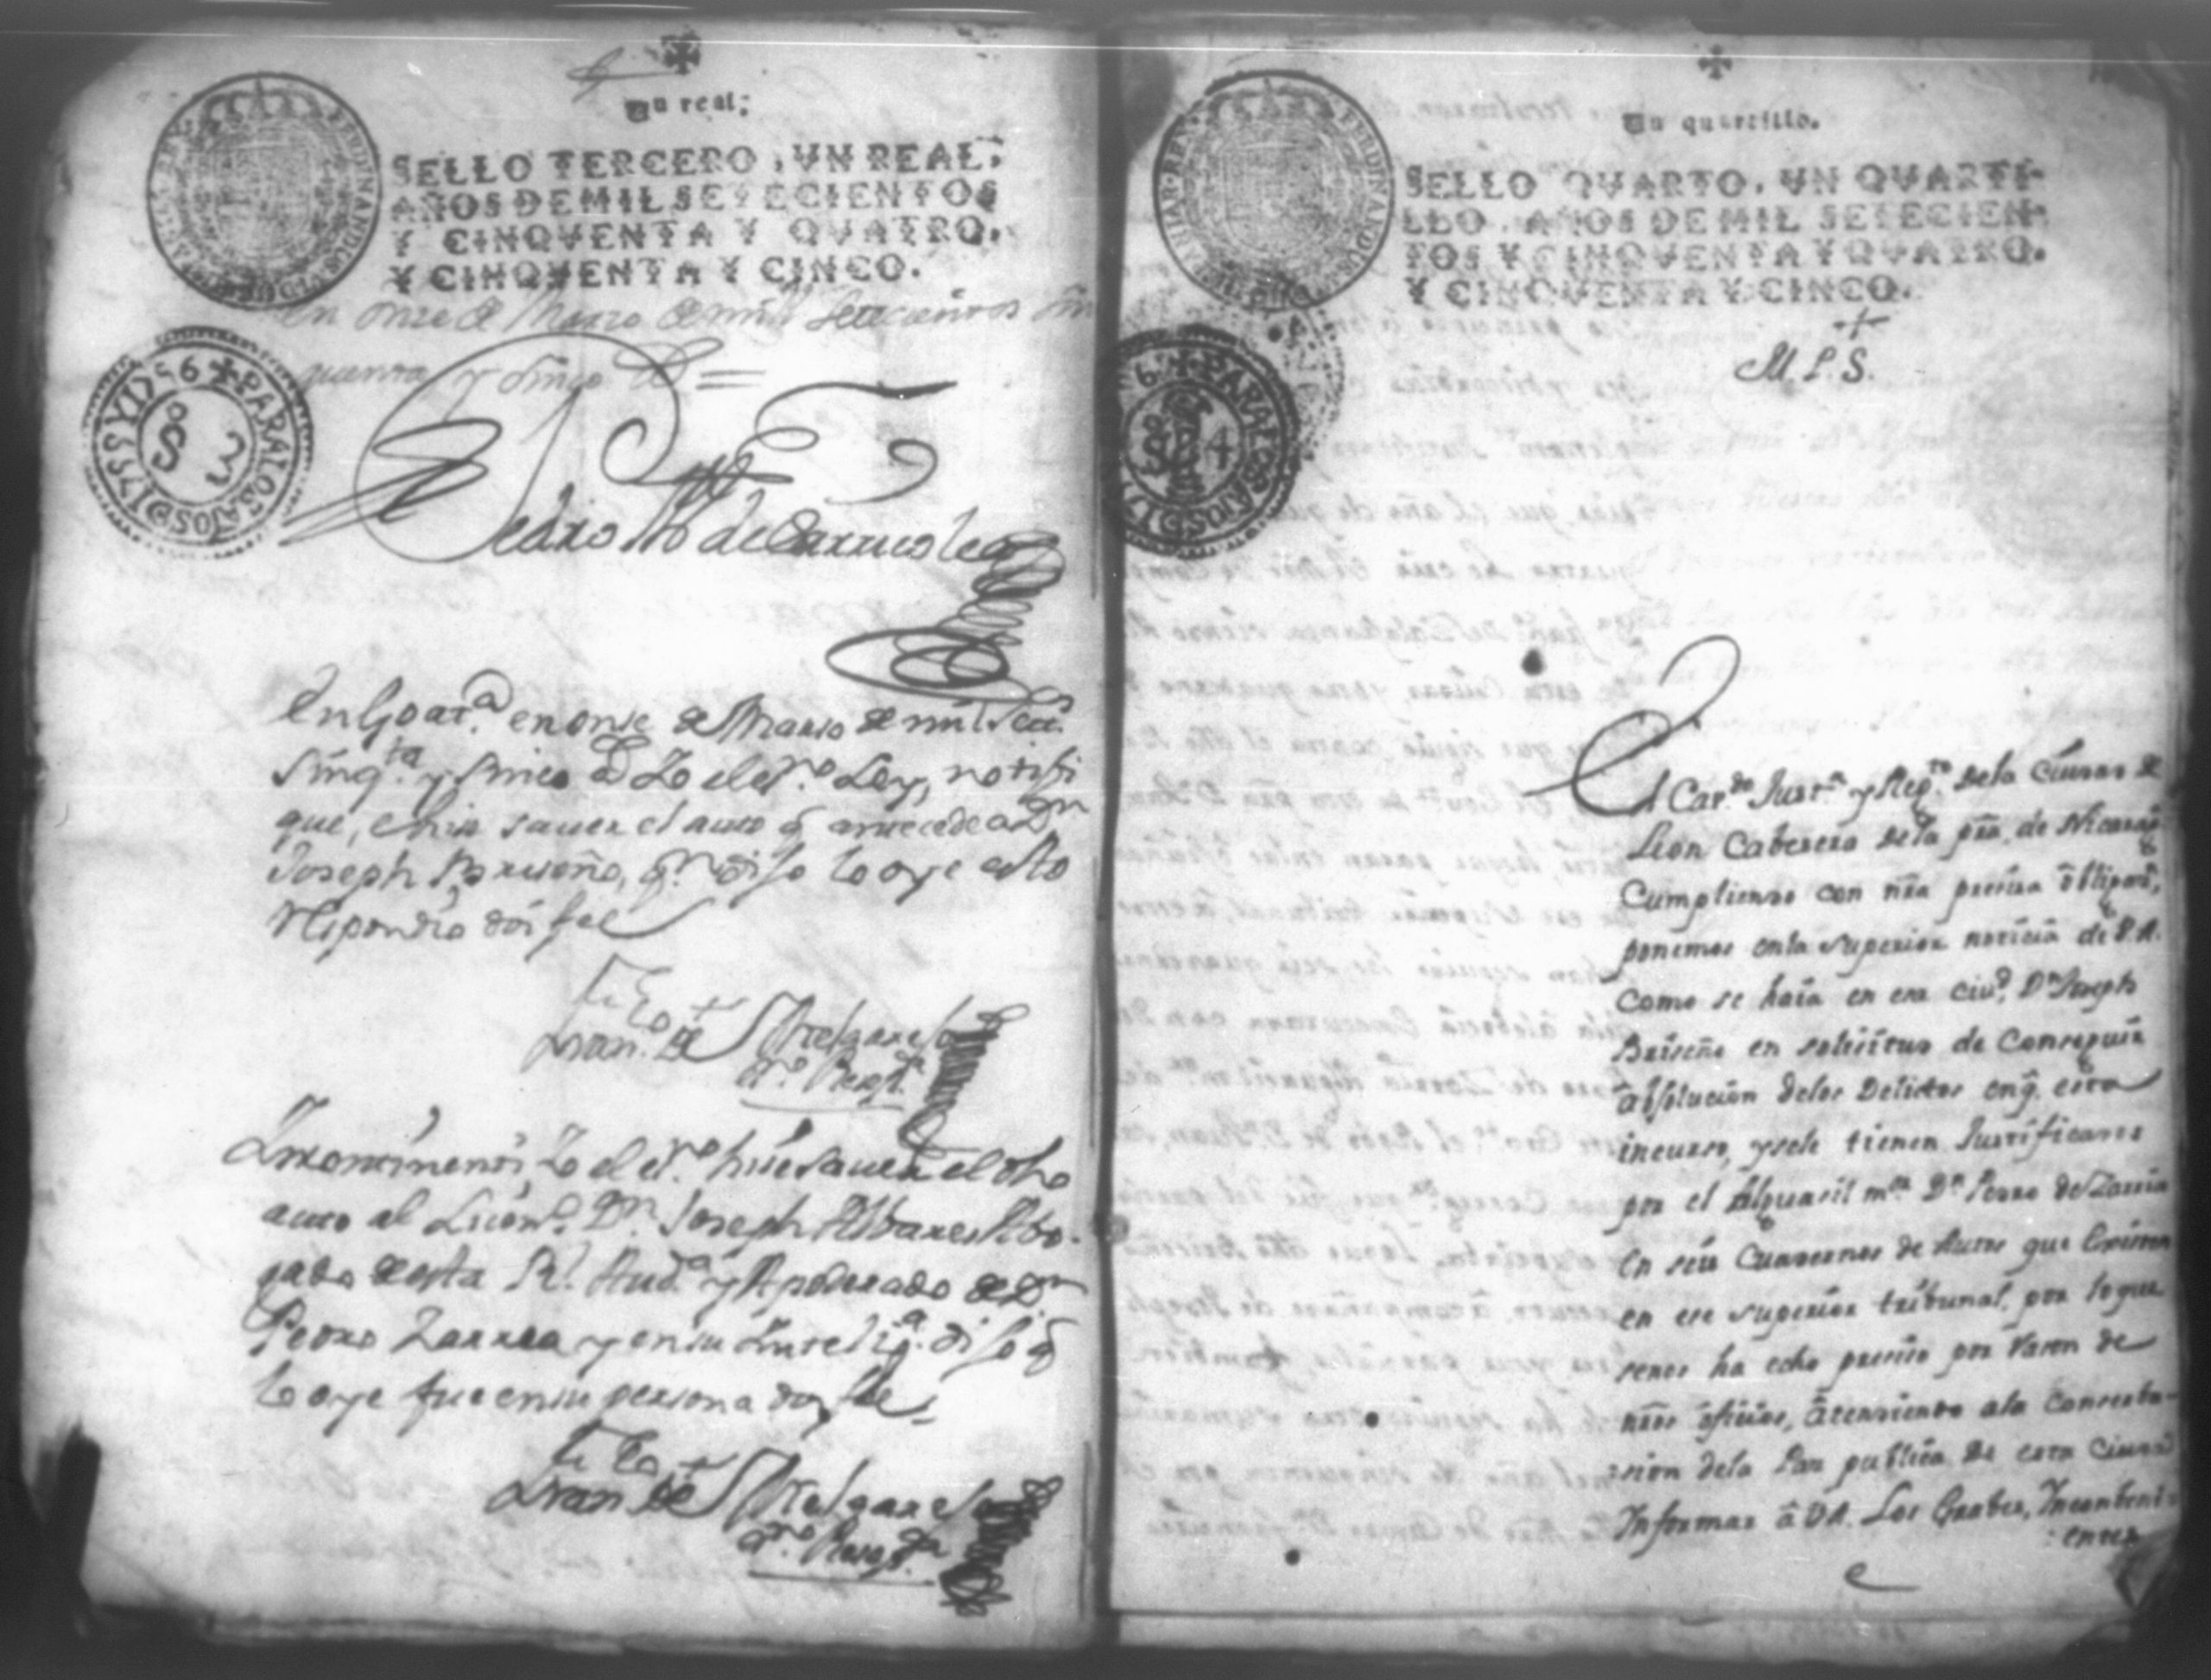 Un real.
SELLO TERCERO, VN REAL,
AÑOS DE MIL SETECIENTOS
Y CINQVENTA Y QVATRO,
Y CINQVENTA Y CINCO.
En onze de Marzo de mill Setecientos sin
quenta y sinco as
PARALOSAÑOSD1755Y1756
S 3
Pedro de
En Goat.a en onse de Marso de mil Setes.
Sinq.ta y Sinco as Yo el es.no Rey, notifi
que, e hise saver el auto q antecede a Dn
Joseph Briseño, q.n dijo lo oye esto
respondio doi fee
Fran.co de Melgarejo
es.no Recep.r
Incontinenti, Yo el es.no hise saver el dho
auto al Licen.do D.n Joseph Albares Abo-
gado de esta R.l Aud.a y Apoderado de Dn
Pedro Zarria y en su intelig.a dijo q
lo oye fue en su persona doy fee
Fran.co de Melgarejo
es.no Recep.r
Un quartillo.
SELLO QVARTO, VN QVARTI-
LLO, AÑOS DE MIL SETECIEN-
TOS Y CINQVENTA Y QVATRO,
Y CINQVENTA Y CINCO.
M.P.S.
S 4
El Cav.do Just.a y Reg.to dela Ciudad de
Leon Cabezera dela pra. de Nicarag
Cumpliendo con nra precisa obligaon,
ponemos enla superior noticia de V.A.
como se haia en esa ciud. Dn Joseph
Briseño en solicitud de Conseguir
absolucion delos Delictos enq. esta
incurso, ysele tienen Justificados
por el Alguacil m.or Dn Pedro de Zarria
en seis Cuadernos de Autos que Existen
en ese superior tribunal, por loque
senos ha echo preciso por razon de
nros oficios, atendiendo ala Conserba-
sion dela Paz publica de esta Ciudad
Informar a V.A. Los Grabes, Incombeni-
:entes